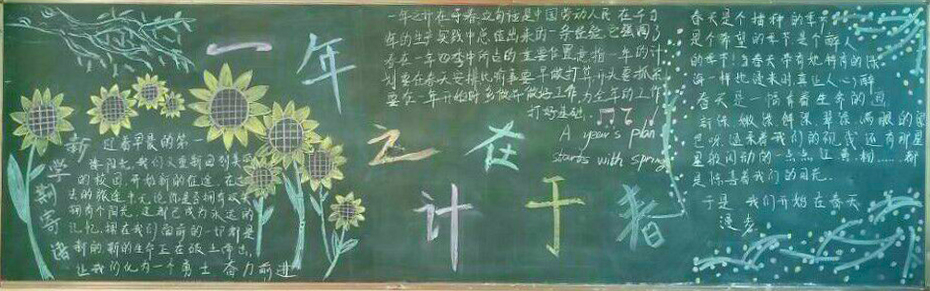 一年
之计
在于春
新学期寄语
迎着早晨的第一
缕阳光，我们又重新回到美丽
的校园，开始新的征途，在过
去的旅途中无论你是否拥有
拥有个阳光，这都已成为永远的
记忆，摆在我们面前的一切都是
新的，新的生命正在破土而出，
让我们化为一个勇士 奋力前进
一年之计在于春，这句话是中国劳动人民在千百
年的生产实践中总结出来的一条经验，它强调了
春在一年四季中所占的重要位置，意指一年的计
划要在春天安排
要在一年开始时多做并做好工作，为全年的工作
打好基础。
A year's plan
starts with spring
春天是个播种的季节
是个希望的季节，是个醉人
的季节！当春天带着她特有的
海一样地漫来时，真让人心醉
春天是一幅有着生命的画
新绿 嫩绿 鲜绿 翠绿 满眼的绿
色呀 温柔着我们的视线 还有那星
星般闪动的一点点红黄粉……
是惊喜着我们的目光.
于是 我们开始在春天
漫步